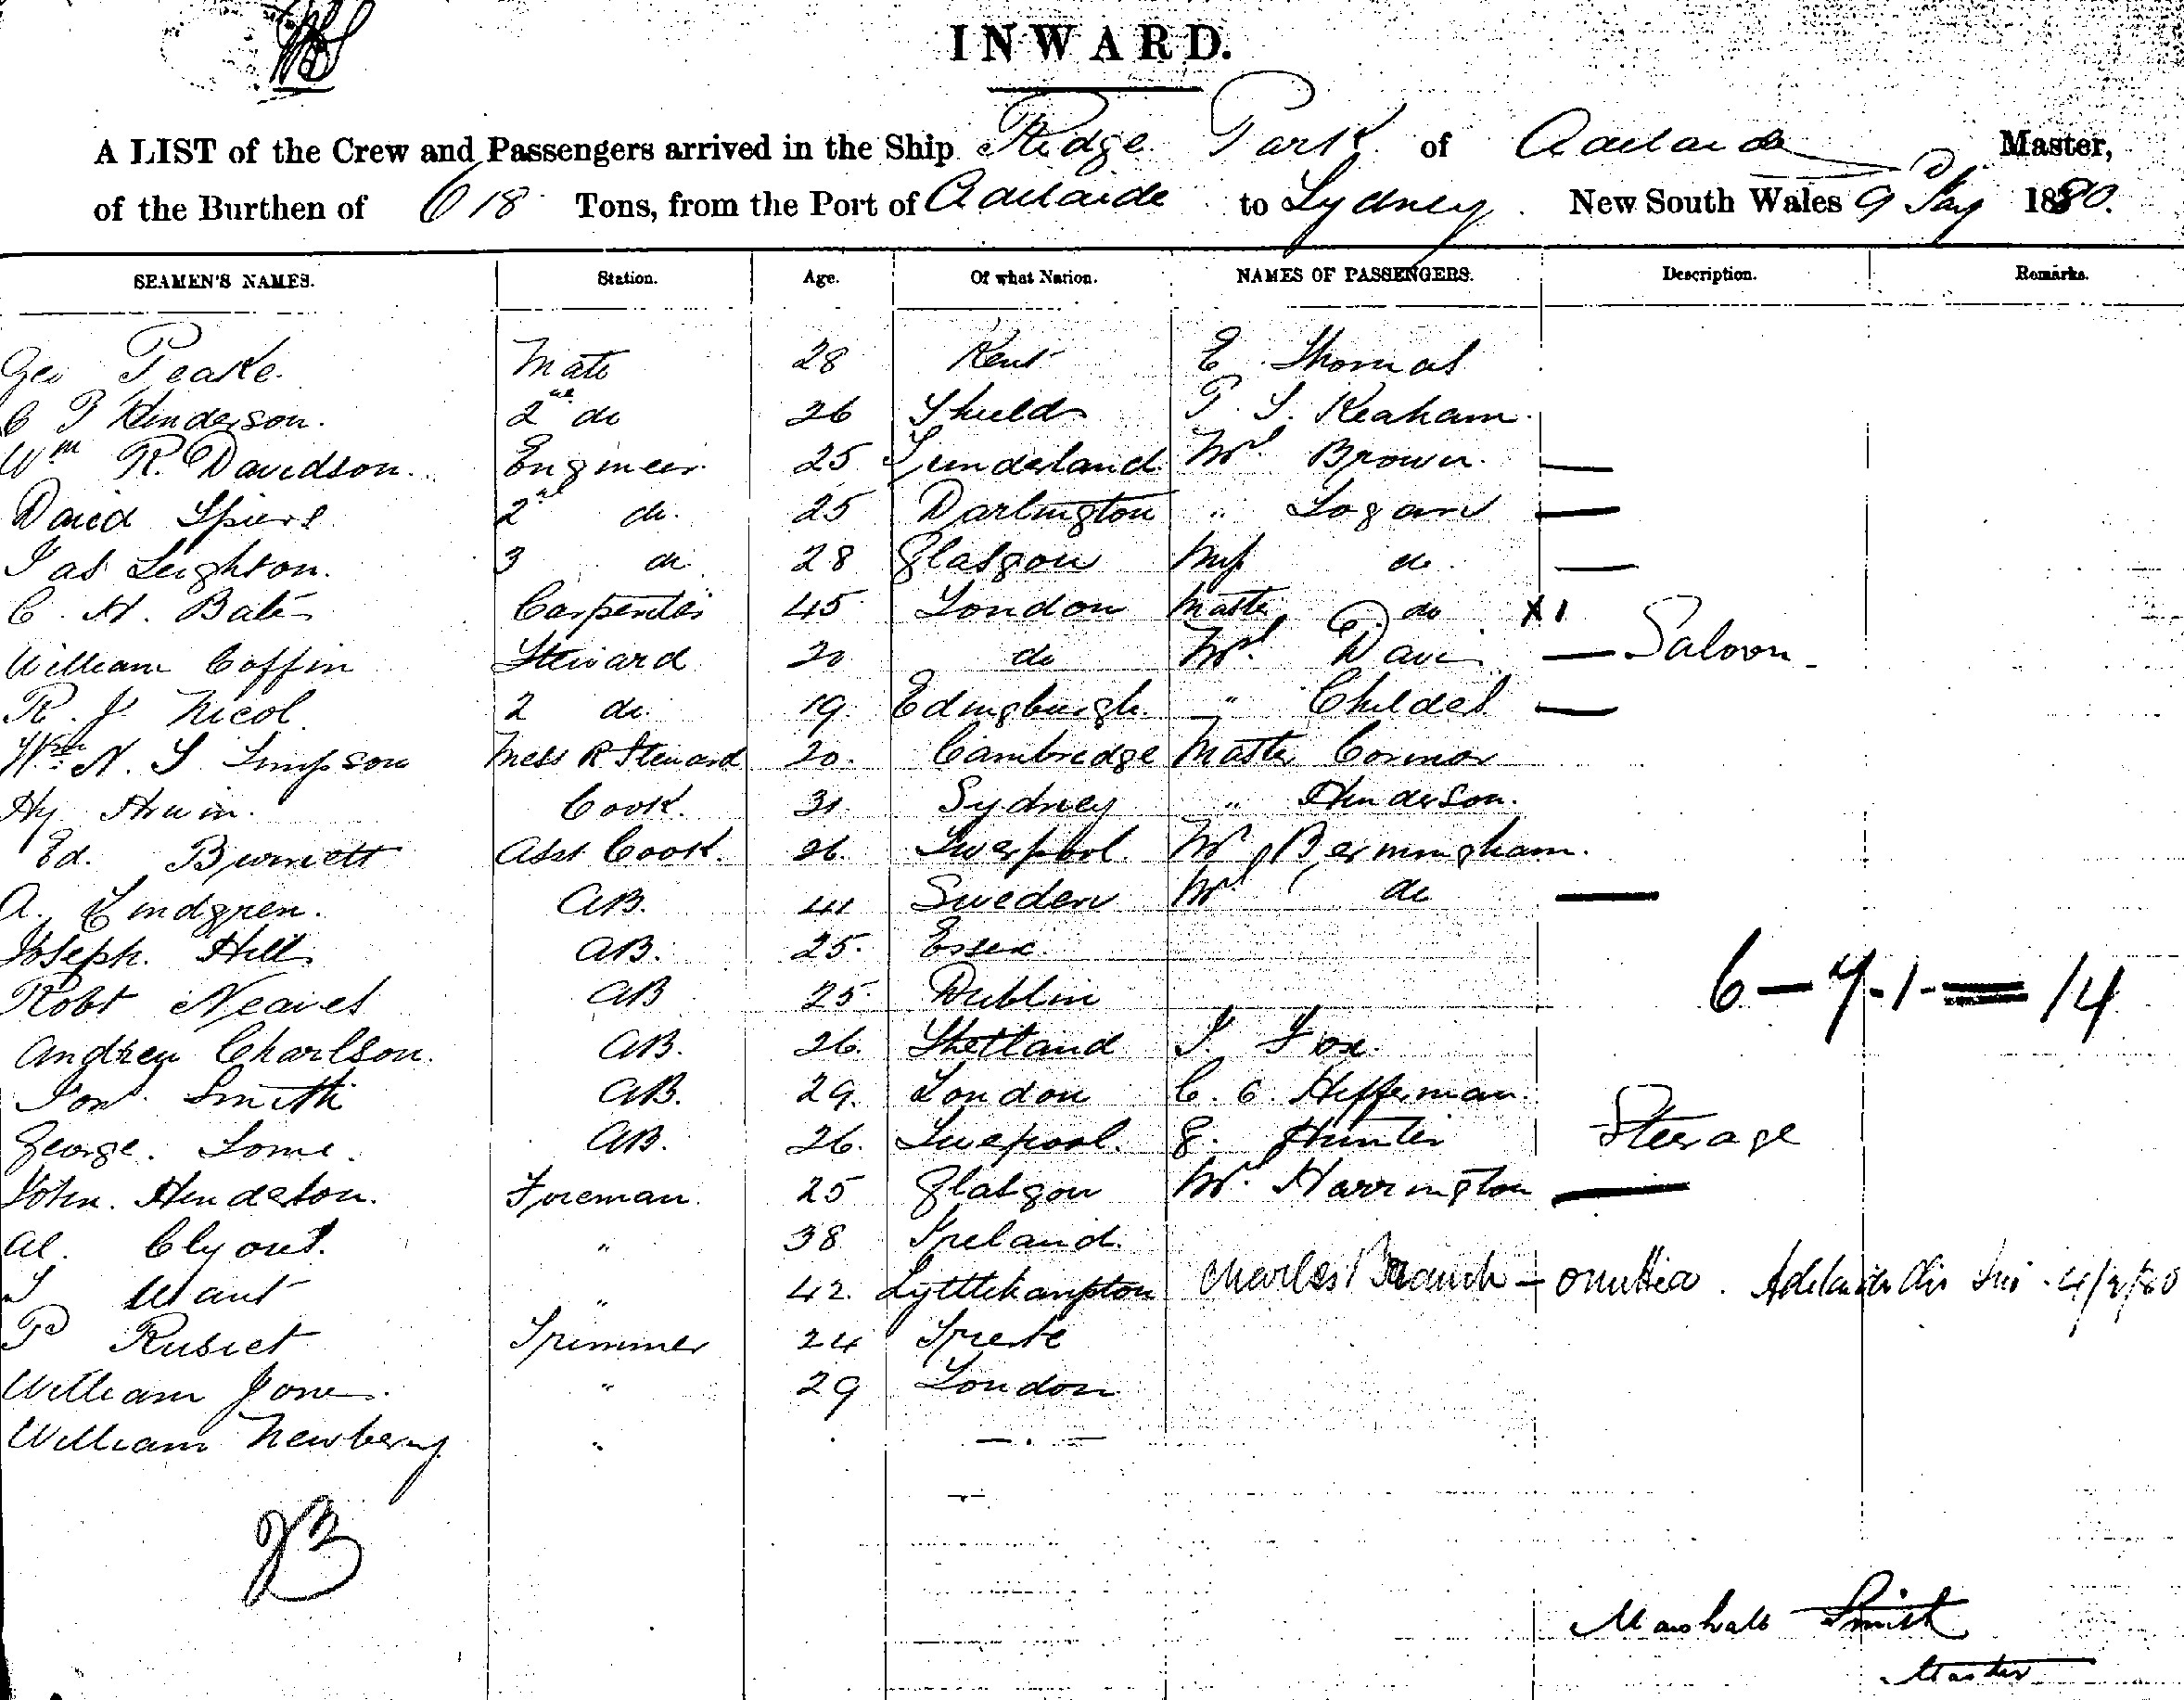 INWARD.
A LIST of the Crew and Passengers arrived in the Ship Ridge Park of Adelaide Master,
of the Burthen of 618 Tons, from the Port of Adelaide to Sydney New South Wales 9 1880.
SEAMEN'S NAMES. Station. Age. Of what Nation. NAMES OF PASSENGERS. Description. Remarks.
Geo Peake. Mate 28 Kent E Thomas
Henderson. 2nd do 26 Shields P. S.
Wm R. Davidson. Engineer 25 Sunderland Mrs Brown —
David Spiers 2nd do. 25 Darlington " Logan —
Jas Leighton. 3 do 28 Glasgow Miss do —
C. H. Bates Carpenter 45 London Master do X1
William Coffin Steward 20 do Mrs — Saloon
R. J. Nicol 2 do 19. Edingburgh. " Childes —
Wm N. S. Simpson Mess R Steward 20. Cambredge Master Connor
Hy Cook. 31. Sydney " Henderson.
Ed. Burnett Asst Cook. 26. Liverpool. Mr Bermingham.
A. Lindgren. AB. 41 Sweden Mrs do —
Joseph. Hill AB. 25. Essex
Robt Neaves AB 25. Dublin
6 — 7. 1 — = 14
Andrew Charlson. AB. 26. Shetland J. Fox.
Smith AB. 29. London C. C. Hefferman.
George. AB. 26. Liverpool. Hunter Steerage
John. Henderson. Foreman 25 Glasgow Mrs Harrington —
Al. " 38 Ireland.
" 42. Lyttlehampton Charles Branch — omitted. Adelaide 4/2/80
P Trimmer 24 Trieste
William Jones. " 29 London
William Newbery " — . —
23
Marshall Smith
Master